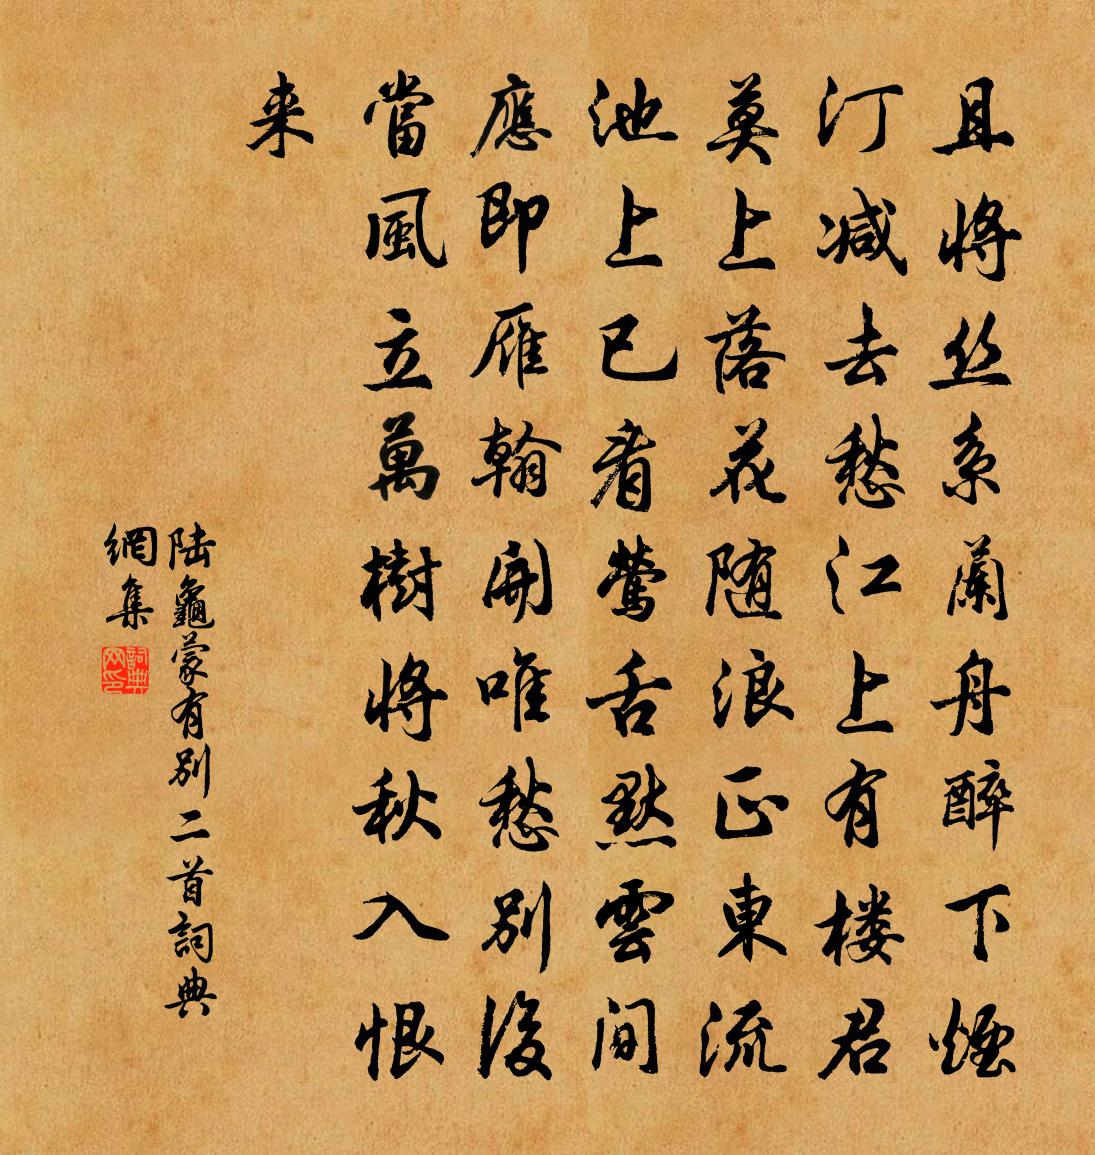 且將丝系蘭舟醉下煙
汀减去愁江上有楼君
莫上落花随浪正東流
池上已看莺舌默雲間
應即雁翰開唯愁別後
當風立萬樹將秋入恨
来
陆龜蒙有别二首詞典
網集
詞典网印